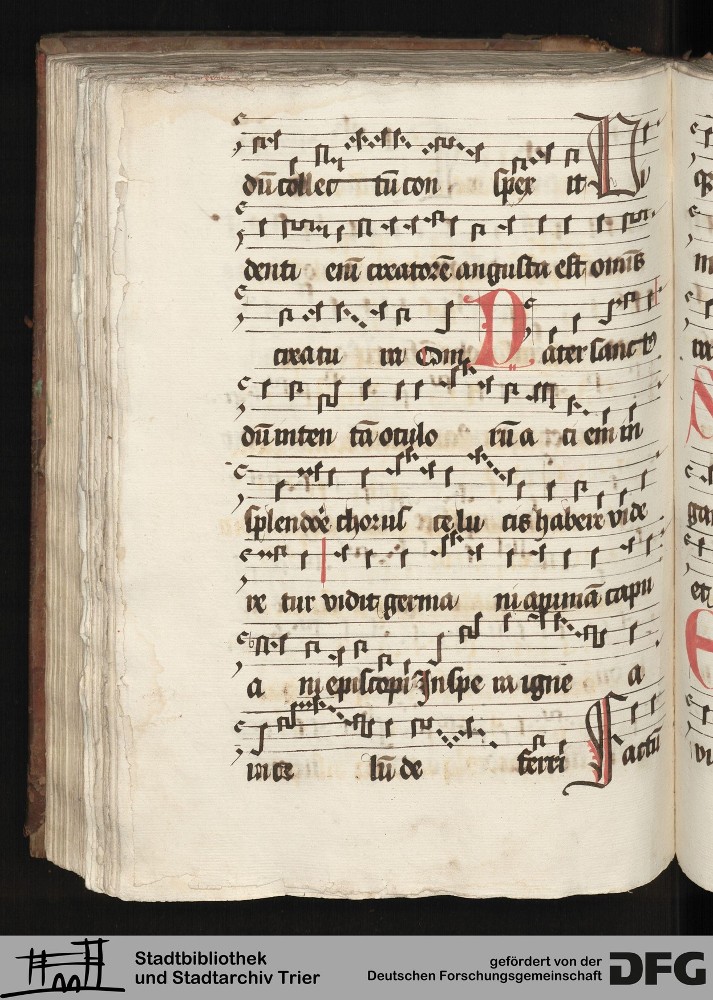 dū collec tū con spex it V
denti em̄ creatorē angusta est omīs
creatu ra Om̄ P ater sanct9
dū inten tā oculo rū a ci em in
splendore chorus celu cis habere vide
re tur vidit germa ni animā capu
a ni episcopi In spe ra igne a
in ce lū de ferri F actū
Stadtbibliothek
und Stadtarchiv Trier
gefördert von der
Deutschen Forschungsgemeinschaft
DFG